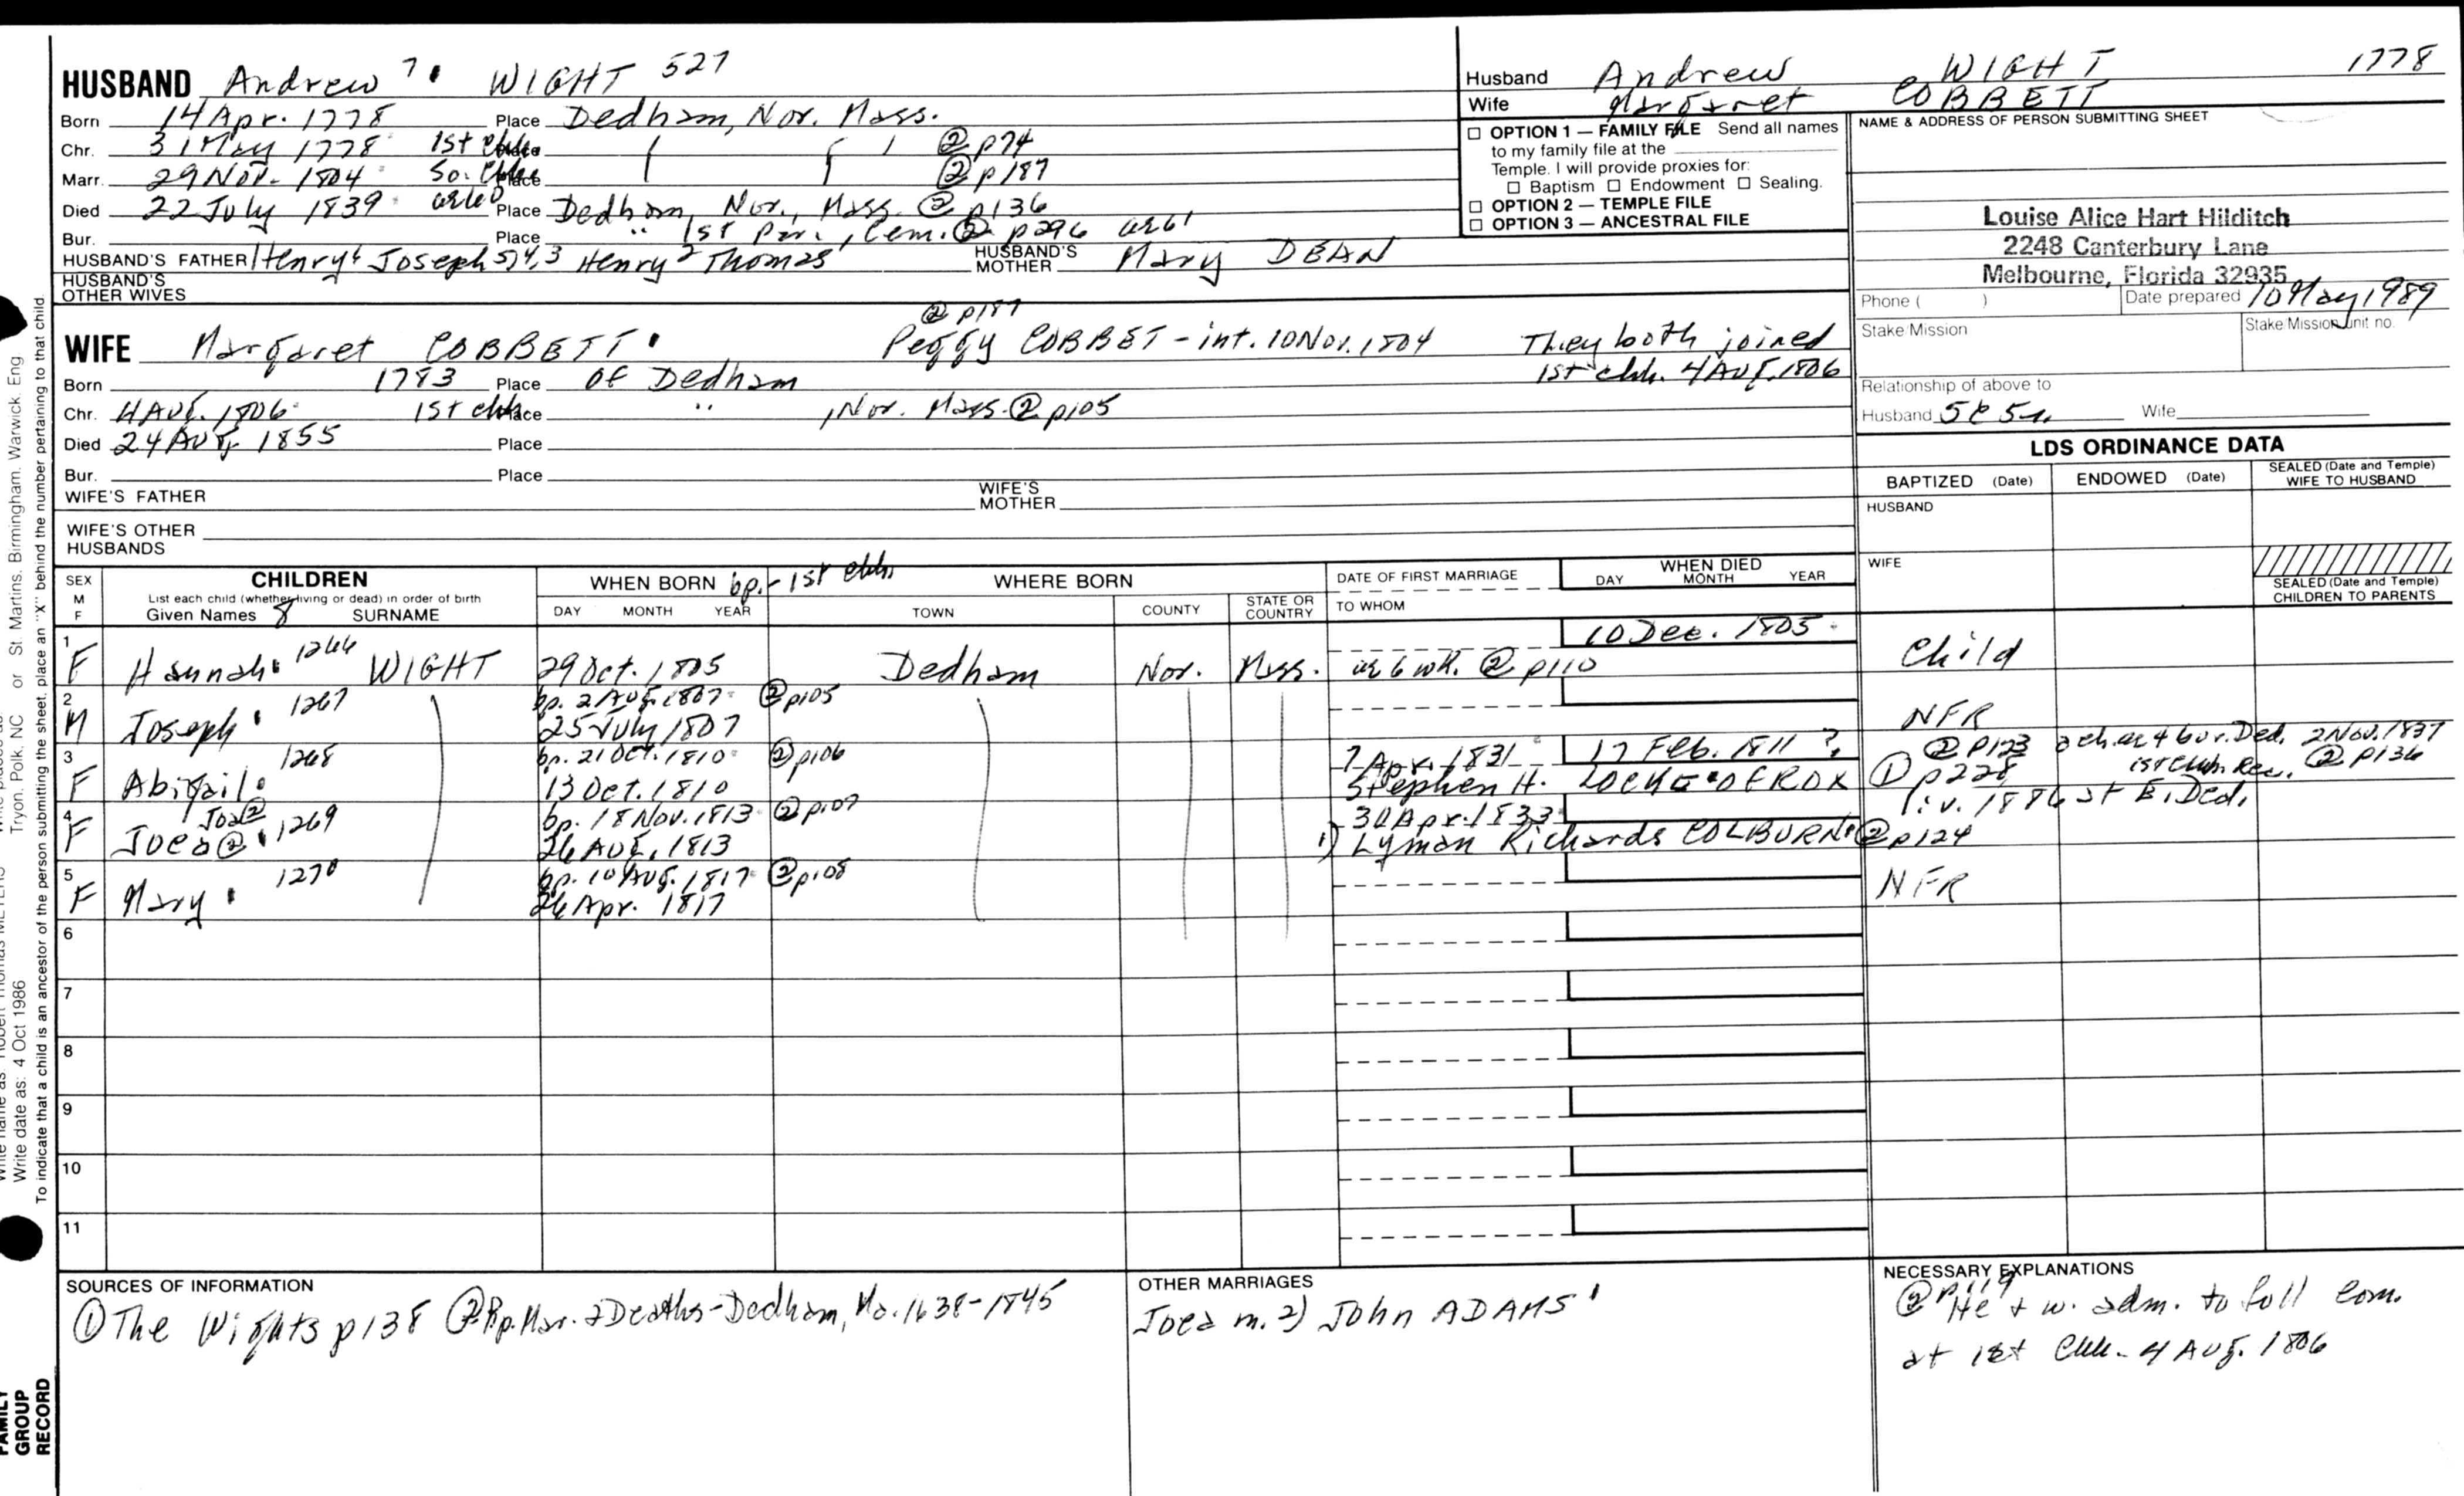 HUSBAND Andrew 7 WIGHT 527
Born 14 Apr. 1778 Place Dedham, Nor. Mass.
Chr. 31 May 1778 1st Chh. Place @ p74
Marr. 29 Nov. 1804 So. Chh. Place @ p187
Died 22 July 1839 Place Dedham, Nor., Mass. @ p136
Bur. Place " 1st Par., Cem. @ p296 ae61
HUSBAND'S FATHER Henry6 Joseph 5,4,3 Henry2 Thomas HUSBAND'S MOTHER Mary DEAN
HUSBAND'S OTHER WIVES
Husband Andrew WIGHT 1778
Wife Margaret COBBETT
☐ OPTION 1 — FAMILY FILE Send all names
to my family file at the
Temple. I will provide proxies for:
☐ Baptism ☐ Endowment ☐ Sealing.
☐ OPTION 2 — TEMPLE FILE
☐ OPTION 3 — ANCESTRAL FILE
NAME & ADDRESS OF PERSON SUBMITTING SHEET
Louise Alice Hart Hilditch
2248 Canterbury Lane
Melbourne, Florida 32935
Phone ( ) Date prepared 10 May 1989
Stake/Mission Stake/Mission unit no.
Relationship of above to
Husband Wife
@ p187
WIFE Margaret COBBETT Peggy COBBET - int. 10 Nov. 1804 They both joined
1st chh. 4 Aug. 1806
Born 1783 Place Of Dedham
Chr. 4 Aug. 1806 1st chh. Place " , Nor. Mass. @ p105
Died 24 Aug. 1855 Place
Bur. Place
WIFE'S FATHER WIFE'S MOTHER
WIFE'S OTHER HUSBANDS
LDS ORDINANCE DATA
BAPTIZED (Date) ENDOWED (Date) SEALED (Date and Temple) WIFE TO HUSBAND
HUSBAND
WIFE
SEALED (Date and Temple) CHILDREN TO PARENTS
SEX M F
CHILDREN
List each child (whether living or dead) in order of birth
Given Names 8 SURNAME
WHEN BORN bp. - 1st chh.
DAY MONTH YEAR
WHERE BORN
TOWN COUNTY STATE OR COUNTRY
DATE OF FIRST MARRIAGE
TO WHOM
WHEN DIED
DAY MONTH YEAR
1 10 Dec. 1805
F Hannah 1266 WIGHT 29 Oct. 1805 Dedham Nor. Mass. ae 6 wk. @ p110 Child
2 1267 bp. 2 Aug. 1807 @ p105
M Joseph 25 July 1807 NFR
3 1268 bp. 21 Oct. 1810 @ p106 7 Apr. 1831 17 Feb. 1811 ? @ p123 a ch. ae 4 bur. Ded. 2 Nov. 1837
F Abigail 13 Oct. 1810 Stephen H. LOCKE OF ROX ① p228 1st Chh. Rec. @ p136
4 Joa② 1269 bp. 18 Nov. 1813 @ p107 30 Apr. 1833 liv. 1886 at E. Ded.
F Joea@ 26 Aug. 1813 1) Lyman Richards COLBURN @ p124
5 1270 bp. 10 Aug. 1817 @ p108
F Mary 26 Apr. 1817 NFR
6
7
8
9
10
11
SOURCES OF INFORMATION
① The Wights p138 ② Bp. Mar. & Deaths - Dedham, Ma. 1638-1845
OTHER MARRIAGES
Joea m. 2) John ADAMS
NECESSARY EXPLANATIONS
@ p119
He & w. adm. to full com.
at 1st Chh. - 4 Aug. 1806
or St. Martins, Birmingham, Warwick, Eng
Tryon, Polk, NC
Write date as: 4 Oct 1986
To indicate that a child is an ancestor of the person submitting the sheet, place an "X" behind the number pertaining to that child
FAMILY
GROUP
RECORD